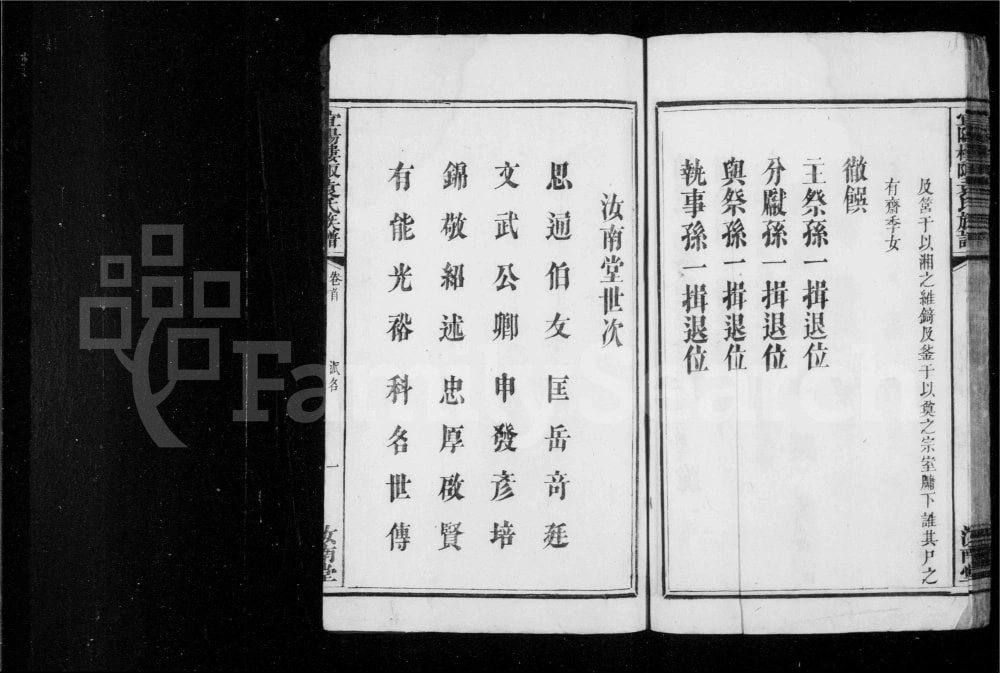 及筥于以湘之維錡及釜于以奠之宗室牖下誰其尸之
有齋季女
徹饌
主祭孫一揖退位
分獻孫一揖退位
與祭孫一揖退位
執事孫一揖退位
汝南堂世次
思通伯友 匡岳奇廷
文武公卿 申發彥培
錦敬紹述 忠厚啟賢
有能光裕 科名世傳
袁氏族譜
卷首
派名
一
汝南堂
FamilySearch